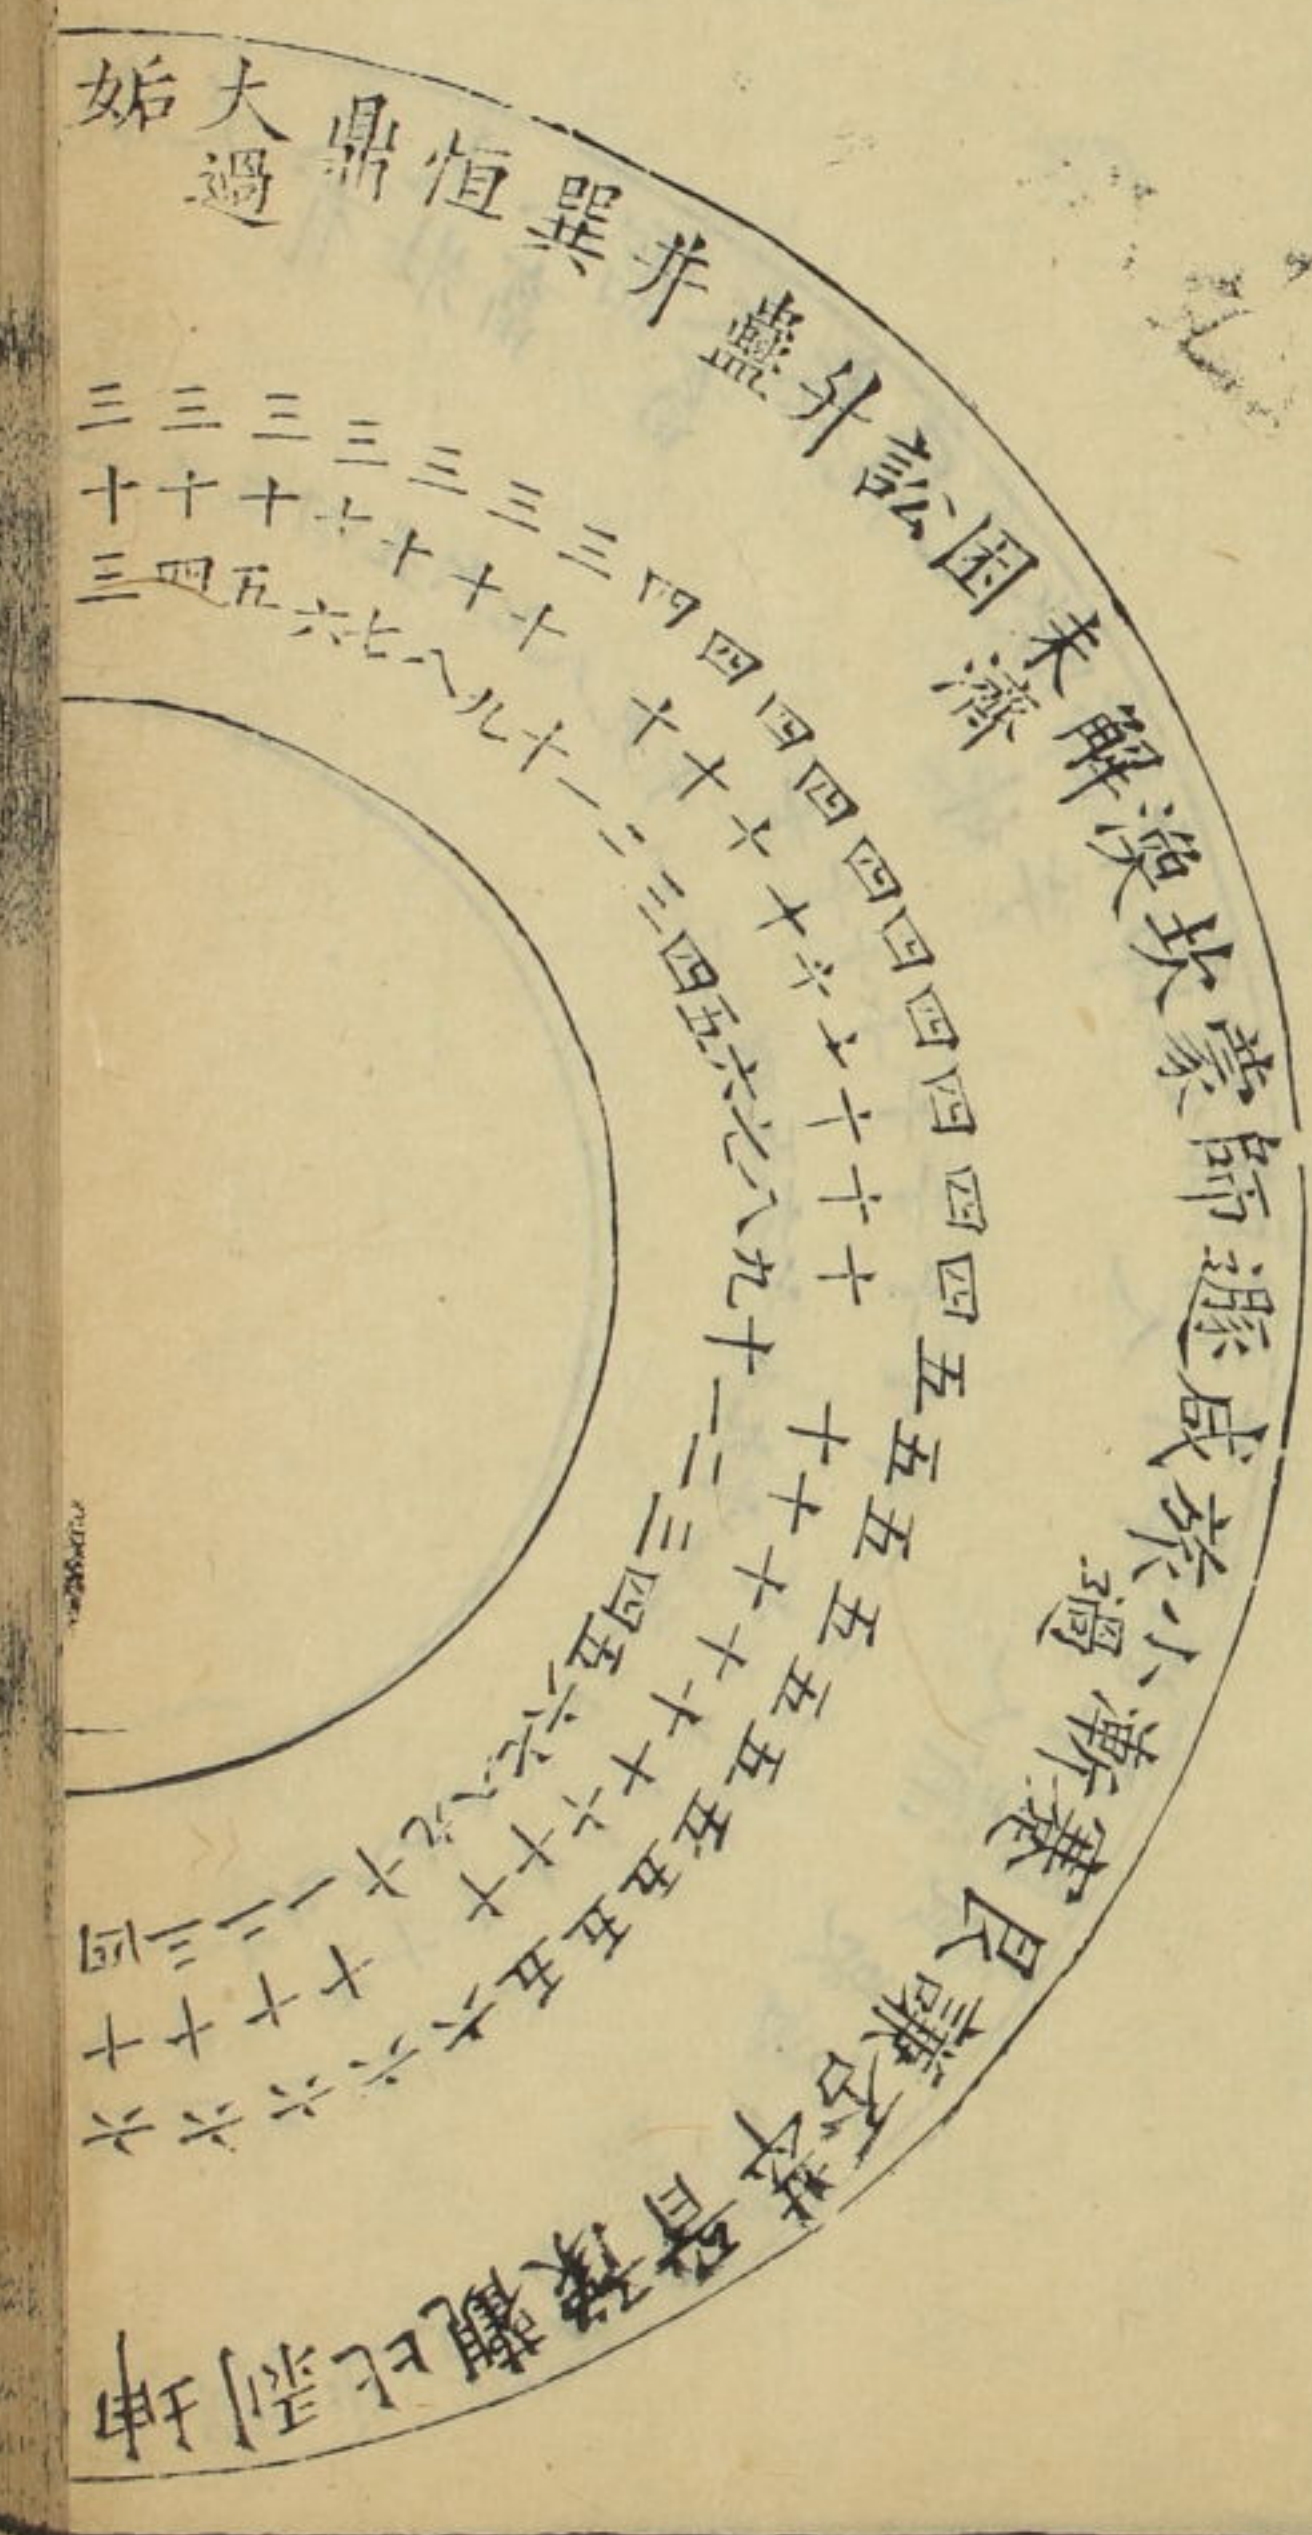 姤
大過
鼎
恒
巽
井
蠱
升
訟
困
未濟
解
渙
坎
蒙
師
遯
咸
旅
小過
漸
蹇
艮
謙
否
萃
晉
豫
觀
比
剥
坤
三十三
三十四
三十五
三十六
三十七
三十八
三十九
四十
四十一
四十二
四十三
四十四
四十五
四十六
四十七
四十八
四十九
五十
五十一
五十二
五十三
五十四
五十五
五十六
五十七
五十八
五十九
六十
六十一
六十二
六十三
六十四